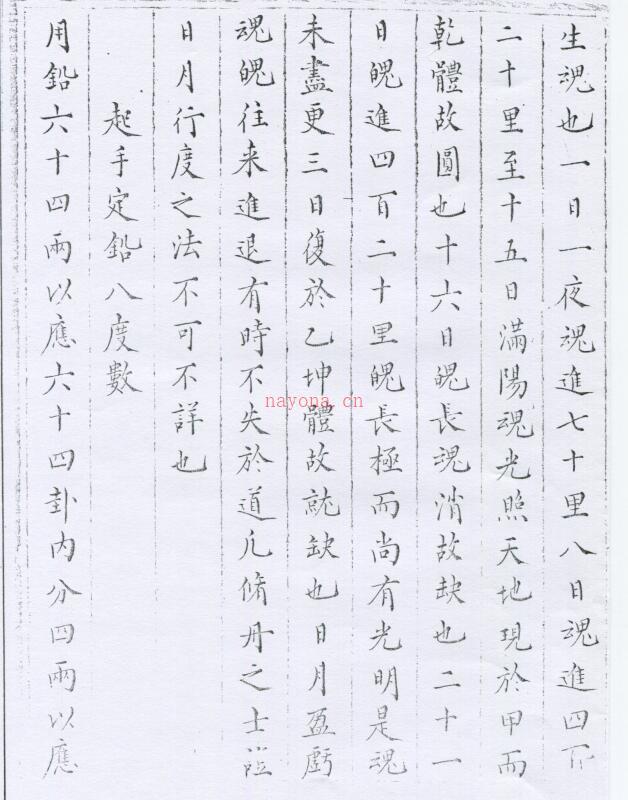 生魂也一日一夜魂進七十里八日魂進四百
二十里至十五日滿陽魂光照天地現於甲而
乾體故圓也十六日魄長魂消故缺也二十一
日魄進四百二十里魄長極而尚有光明是魂
未盡更三日復於乙坤體故就缺也日月盈虧
魂魄往来進退有時不失於道凢脩丹之士
日月行度之法不可不詳也
起手定鉛八度數
用鉛六十四兩以應六十四卦内分四兩以應
nayona.cn